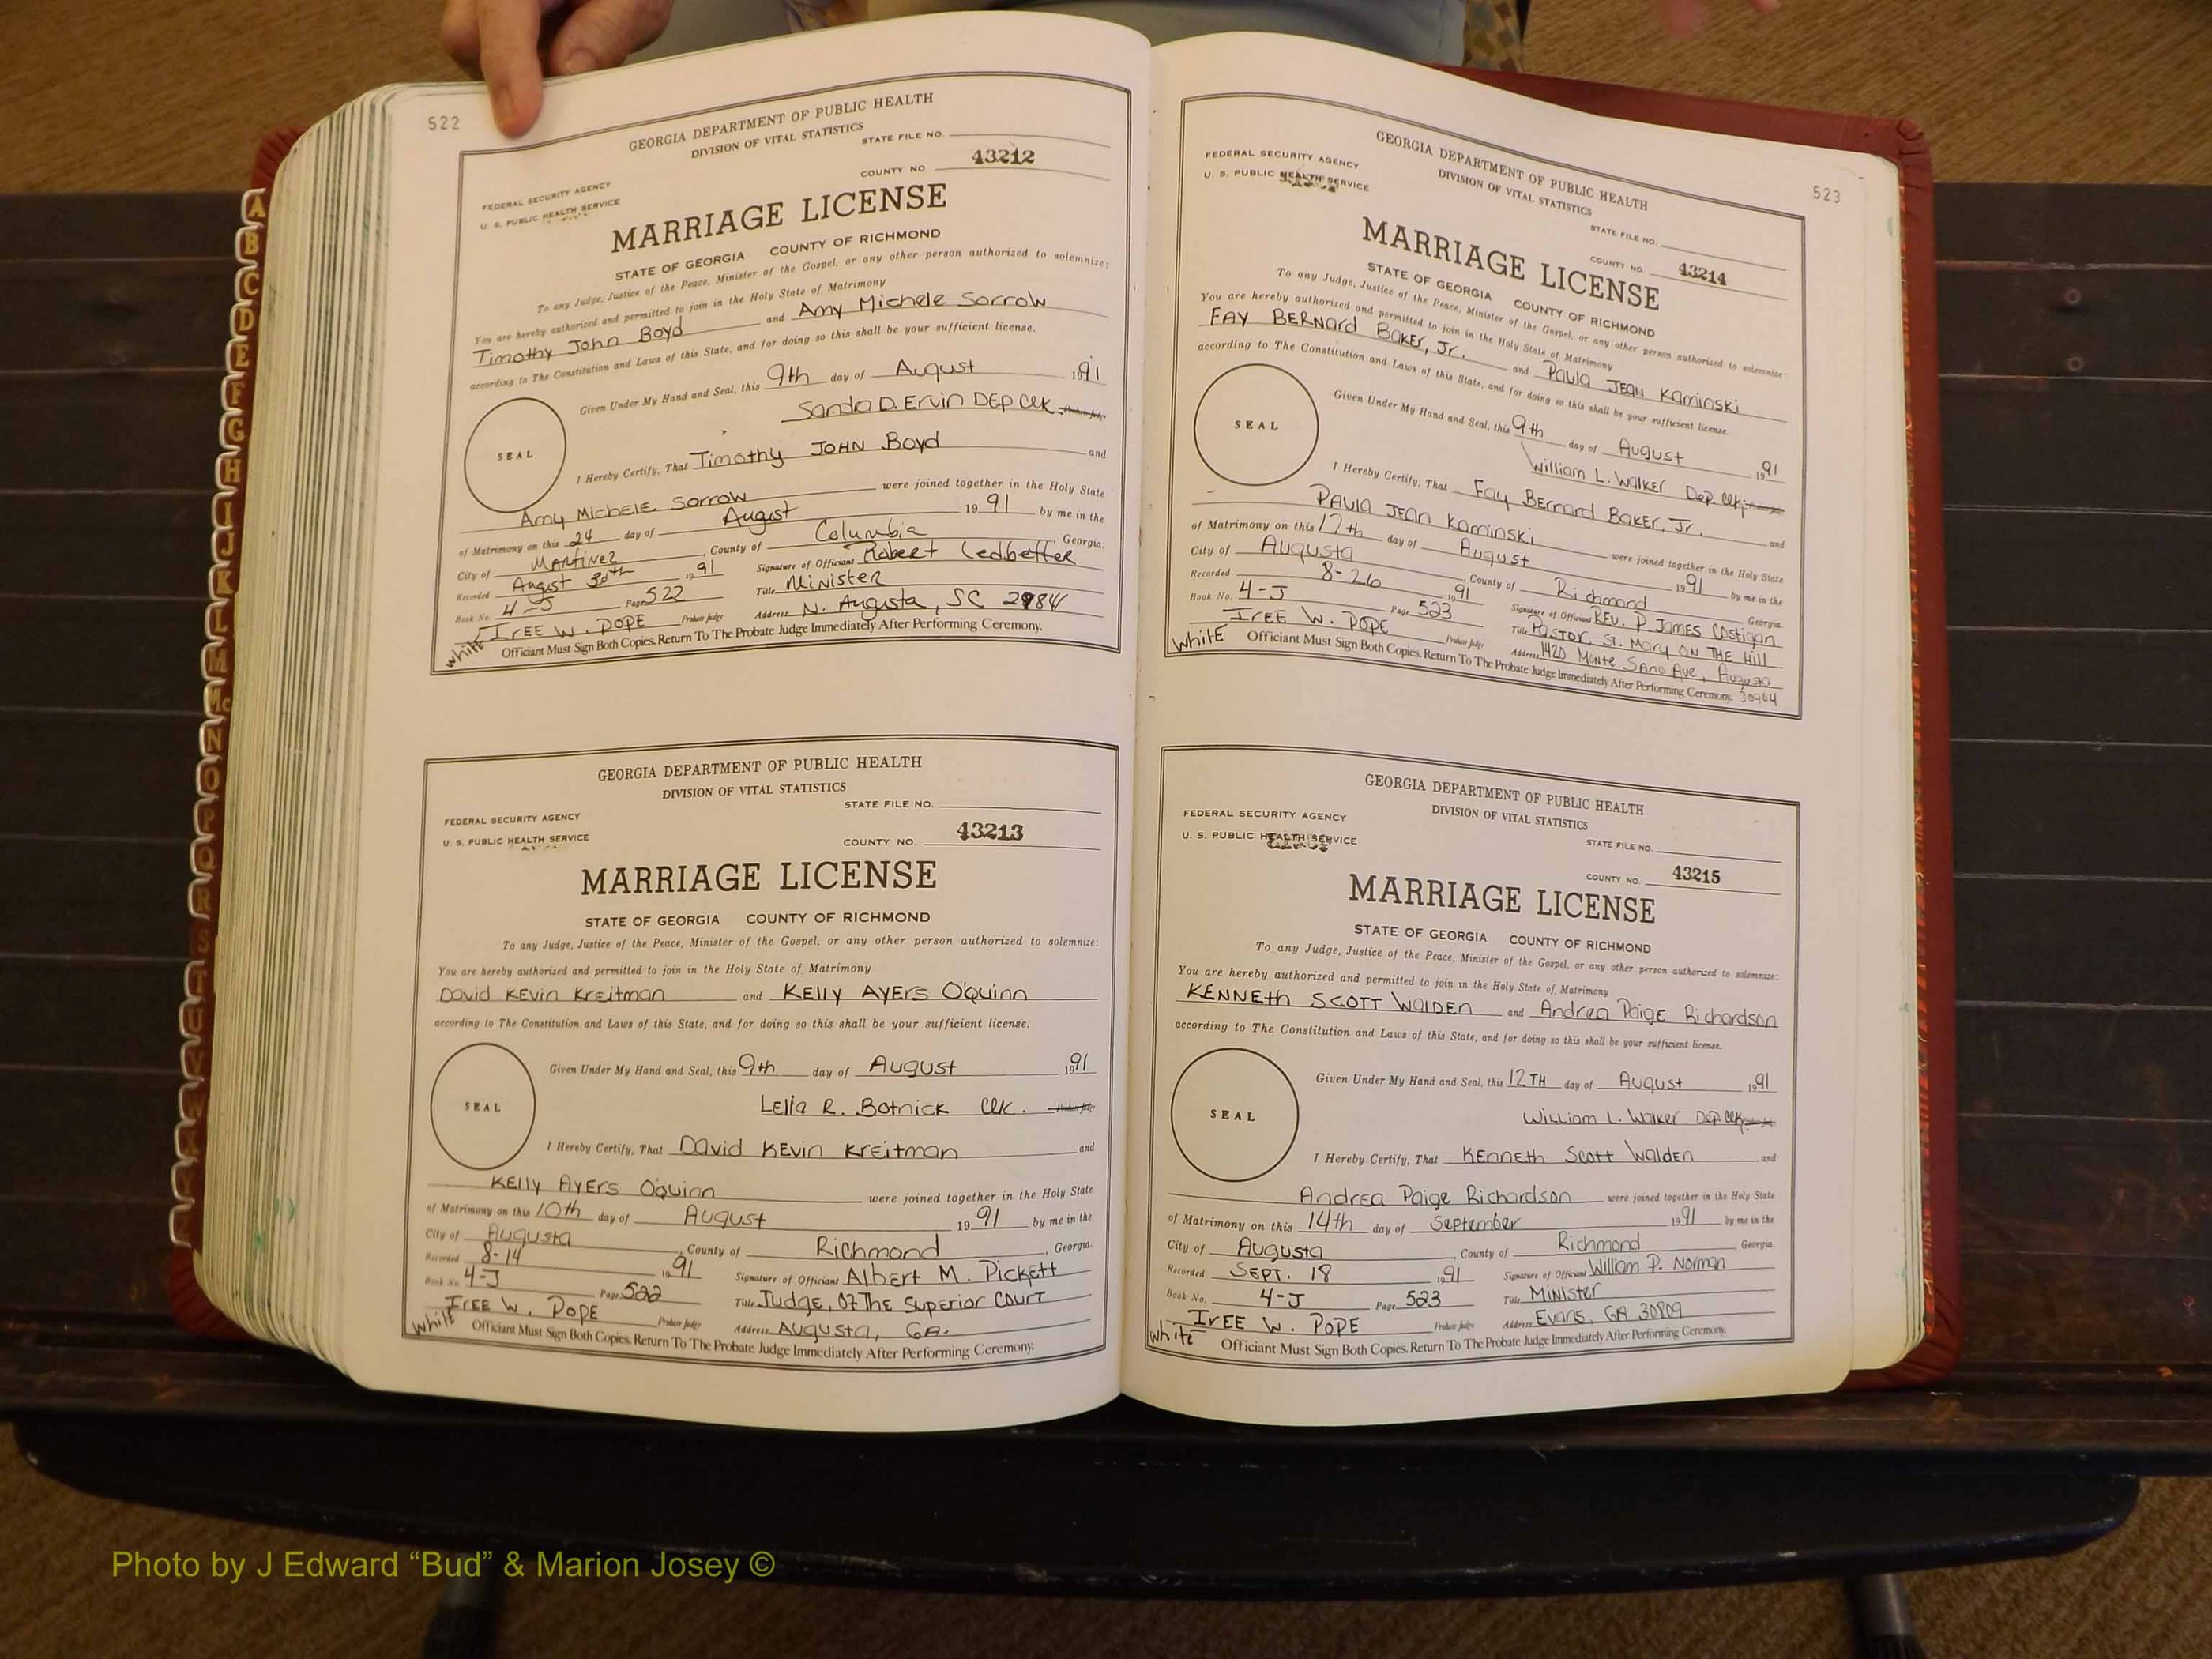 522
GEORGIA DEPARTMENT OF PUBLIC HEALTH
DIVISION OF VITAL STATISTICS
STATE FILE NO.
COUNTY NO. 43212
FEDERAL SECURITY AGENCY
U. S. PUBLIC HEALTH SERVICE
MARRIAGE LICENSE
STATE OF GEORGIA COUNTY OF RICHMOND
To any Judge, Justice of the Peace, Minister of the Gospel, or any other person authorized to solemnize:
You are hereby authorized and permitted to join in the Holy State of Matrimony
Timothy John Boyd and Amy Michele Sorrow
according to The Constitution and Laws of this State, and for doing so this shall be your sufficient license.
Given Under My Hand and Seal, this 9th day of August 1991
Sanda D. Ervin DEP Clk. Probate Judge
SEAL
I Hereby Certify, That Timothy JOHN Boyd and
Amy MichELE Sorrow were joined together in the Holy State
of Matrimony on this 24 day of August 1991 by me in the
City of MArtinez, County of Columbia, Georgia.
Recorded August 30th 1991 Signature of Officiant Robert Ledbetter
Book No. 4-J Page 522 Title Minister
IrEE W. POPE Probate Judge Address N. Augusta, SC
White Officiant Must Sign Both Copies. Return To The Probate Judge Immediately After Performing Ceremony.
GEORGIA DEPARTMENT OF PUBLIC HEALTH
DIVISION OF VITAL STATISTICS
STATE FILE NO.
FEDERAL SECURITY AGENCY
U. S. PUBLIC HEALTH SERVICE
COUNTY NO. 43213
MARRIAGE LICENSE
STATE OF GEORGIA COUNTY OF RICHMOND
To any Judge, Justice of the Peace, Minister of the Gospel, or any other person authorized to solemnize:
You are hereby authorized and permitted to join in the Holy State of Matrimony
David KEvin Kreitman and KElly AYErs O'Quinn
according to The Constitution and Laws of this State, and for doing so this shall be your sufficient license.
Given Under My Hand and Seal, this 9th day of August 1991
LElia R. Botnick Clk. Probate Judge
SEAL
I Hereby Certify, That David KEvin Kreitman and
KElly AYErs O'Quinn were joined together in the Holy State
of Matrimony on this 10th day of August 1991 by me in the
City of Augusta, County of Richmond, Georgia.
Recorded 8-14 1991 Signature of Officiant Albert M. Pickett
Book No. 4-J Page 522 Title Judge, Of The Superior Court
IrEE W. POPE Probate Judge Address Augusta, GA.
White Officiant Must Sign Both Copies. Return To The Probate Judge Immediately After Performing Ceremony.
523
GEORGIA DEPARTMENT OF PUBLIC HEALTH
DIVISION OF VITAL STATISTICS
FEDERAL SECURITY AGENCY
U. S. PUBLIC HEALTH SERVICE
STATE FILE NO.
COUNTY NO. 43214
MARRIAGE LICENSE
STATE OF GEORGIA COUNTY OF RICHMOND
To any Judge, Justice of the Peace, Minister of the Gospel, or any other person authorized to solemnize:
You are hereby authorized and permitted to join in the Holy State of Matrimony
FAY BERNArd BAKEr, Jr. and Paula JEAN Kaminski
according to The Constitution and Laws of this State, and for doing so this shall be your sufficient license.
Given Under My Hand and Seal, this 9th day of August 1991
William L. Walker Dep. Clk.
SEAL
I Hereby Certify, That Fay BErnard BakEr, Jr. and
PAula JEAN Kaminski were joined together in the Holy State
of Matrimony on this 17th day of August 1991 by me in the
City of Augusta, County of Richmond Georgia.
Recorded 8-26 1991 Signature of Officiant REV. P. JAMES COStigan
Book No. 4-J Page 523 Title PAStor, St. Mary ON THE Hill
IrEE W. POPE Probate Judge Address 1420 MontE SAno AvE, Augusta
White Officiant Must Sign Both Copies. Return To The Probate Judge Immediately After Performing Ceremony. 30904
GEORGIA DEPARTMENT OF PUBLIC HEALTH
DIVISION OF VITAL STATISTICS
FEDERAL SECURITY AGENCY
U. S. PUBLIC HEALTH SERVICE
STATE FILE NO.
COUNTY NO. 43215
MARRIAGE LICENSE
STATE OF GEORGIA COUNTY OF RICHMOND
To any Judge, Justice of the Peace, Minister of the Gospel, or any other person authorized to solemnize:
You are hereby authorized and permitted to join in the Holy State of Matrimony
KENNEth SCOTT WalDEN and Andrea Paige Richardson
according to The Constitution and Laws of this State, and for doing so this shall be your sufficient license.
Given Under My Hand and Seal, this 12TH day of August 1991
William L. Walker Dep. Clk.
SEAL
I Hereby Certify, That KEnneth Scott Walden and
Andrea Paige Richardson were joined together in the Holy State
of Matrimony on this 14th day of September 1991 by me in the
City of Augusta, County of Richmond Georgia.
Recorded SEPT. 18 1991 Signature of Officiant William P. Norman
Book No. 4-J Page 523 Title Minister
IrEE W. POPE Probate Judge Address Evans, GA 30809
White Officiant Must Sign Both Copies. Return To The Probate Judge Immediately After Performing Ceremony.
A
B
C
D
E
F
G
H
I
J
K
L
M
Mc
N
O
P
Q
R
S
T
Photo by J Edward “Bud” & Marion Josey ©